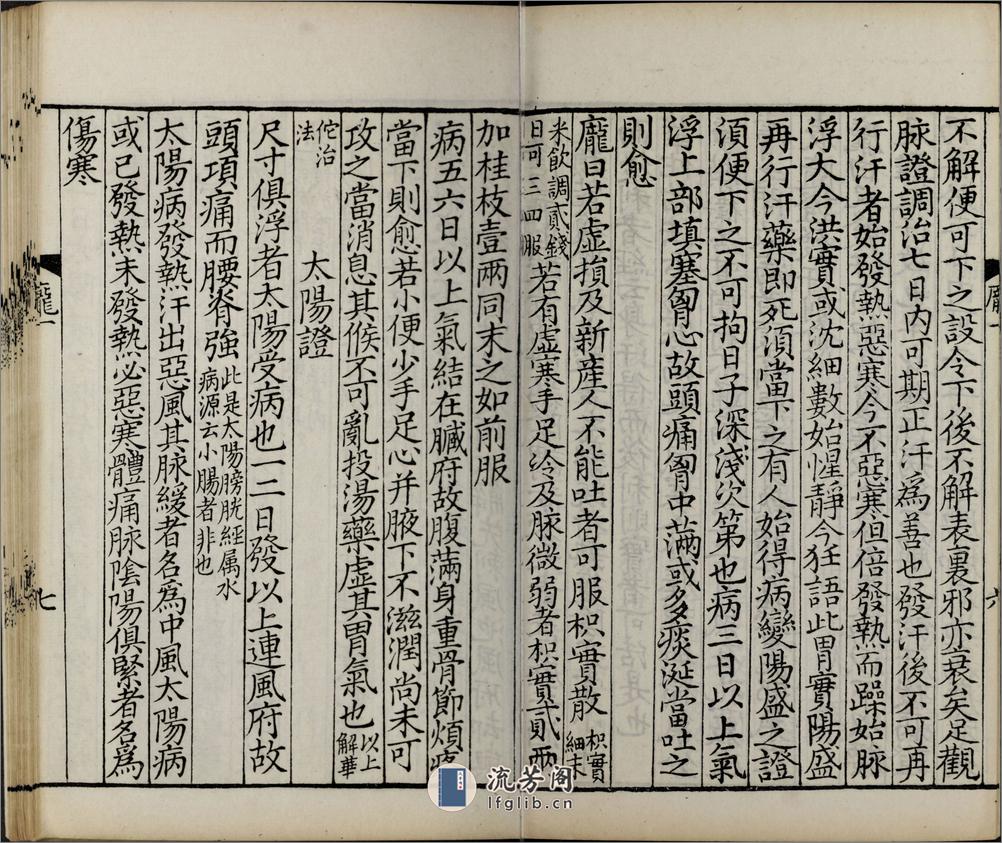 不解便可下之設令下後不解表裏邪亦衰矣足觀
脉證調治七日内可期正汗爲善也發汗後不可再
行汗者始發熱惡寒今不惡寒但倍發熱而躁始脉
浮大今洪實或沈細數始惺靜今狂語此胃實陽盛
再行汗藥即死須當下之有人始得病變陽盛之證
須便下之不可拘日子深淺次第也病三日以上氣
浮上部填塞胷心故頭痛胷中滿或多痰涎當吐之
則愈
龐曰若虛損及新産人不能吐者可服枳實散枳實細末
米飲調貳錢日可三四服若有虛寒手足冷及脉微弱者枳實貳兩
加桂枝壹兩同末之如前服
病五六日以上氣結在臟府故腹滿身重骨節煩疼
當下則愈若小便少手足心并腋下不滋潤尚未可
攻之當消息其候不可亂投湯藥虛其胃氣也以上解華
佗治法
太陽證
尺寸俱浮者太陽受病也一二日發以上連風府故
頭項痛而腰脊強此是太陽膀胱經属水病源云小腸者非也
太陽病發熱汗出惡風其脉緩者名爲中風太陽病
或已發熱未發熱必惡寒體痛脉陰陽俱緊者名爲
傷寒
龐一
六
龐一
七
流芳阁
lfglib.cn